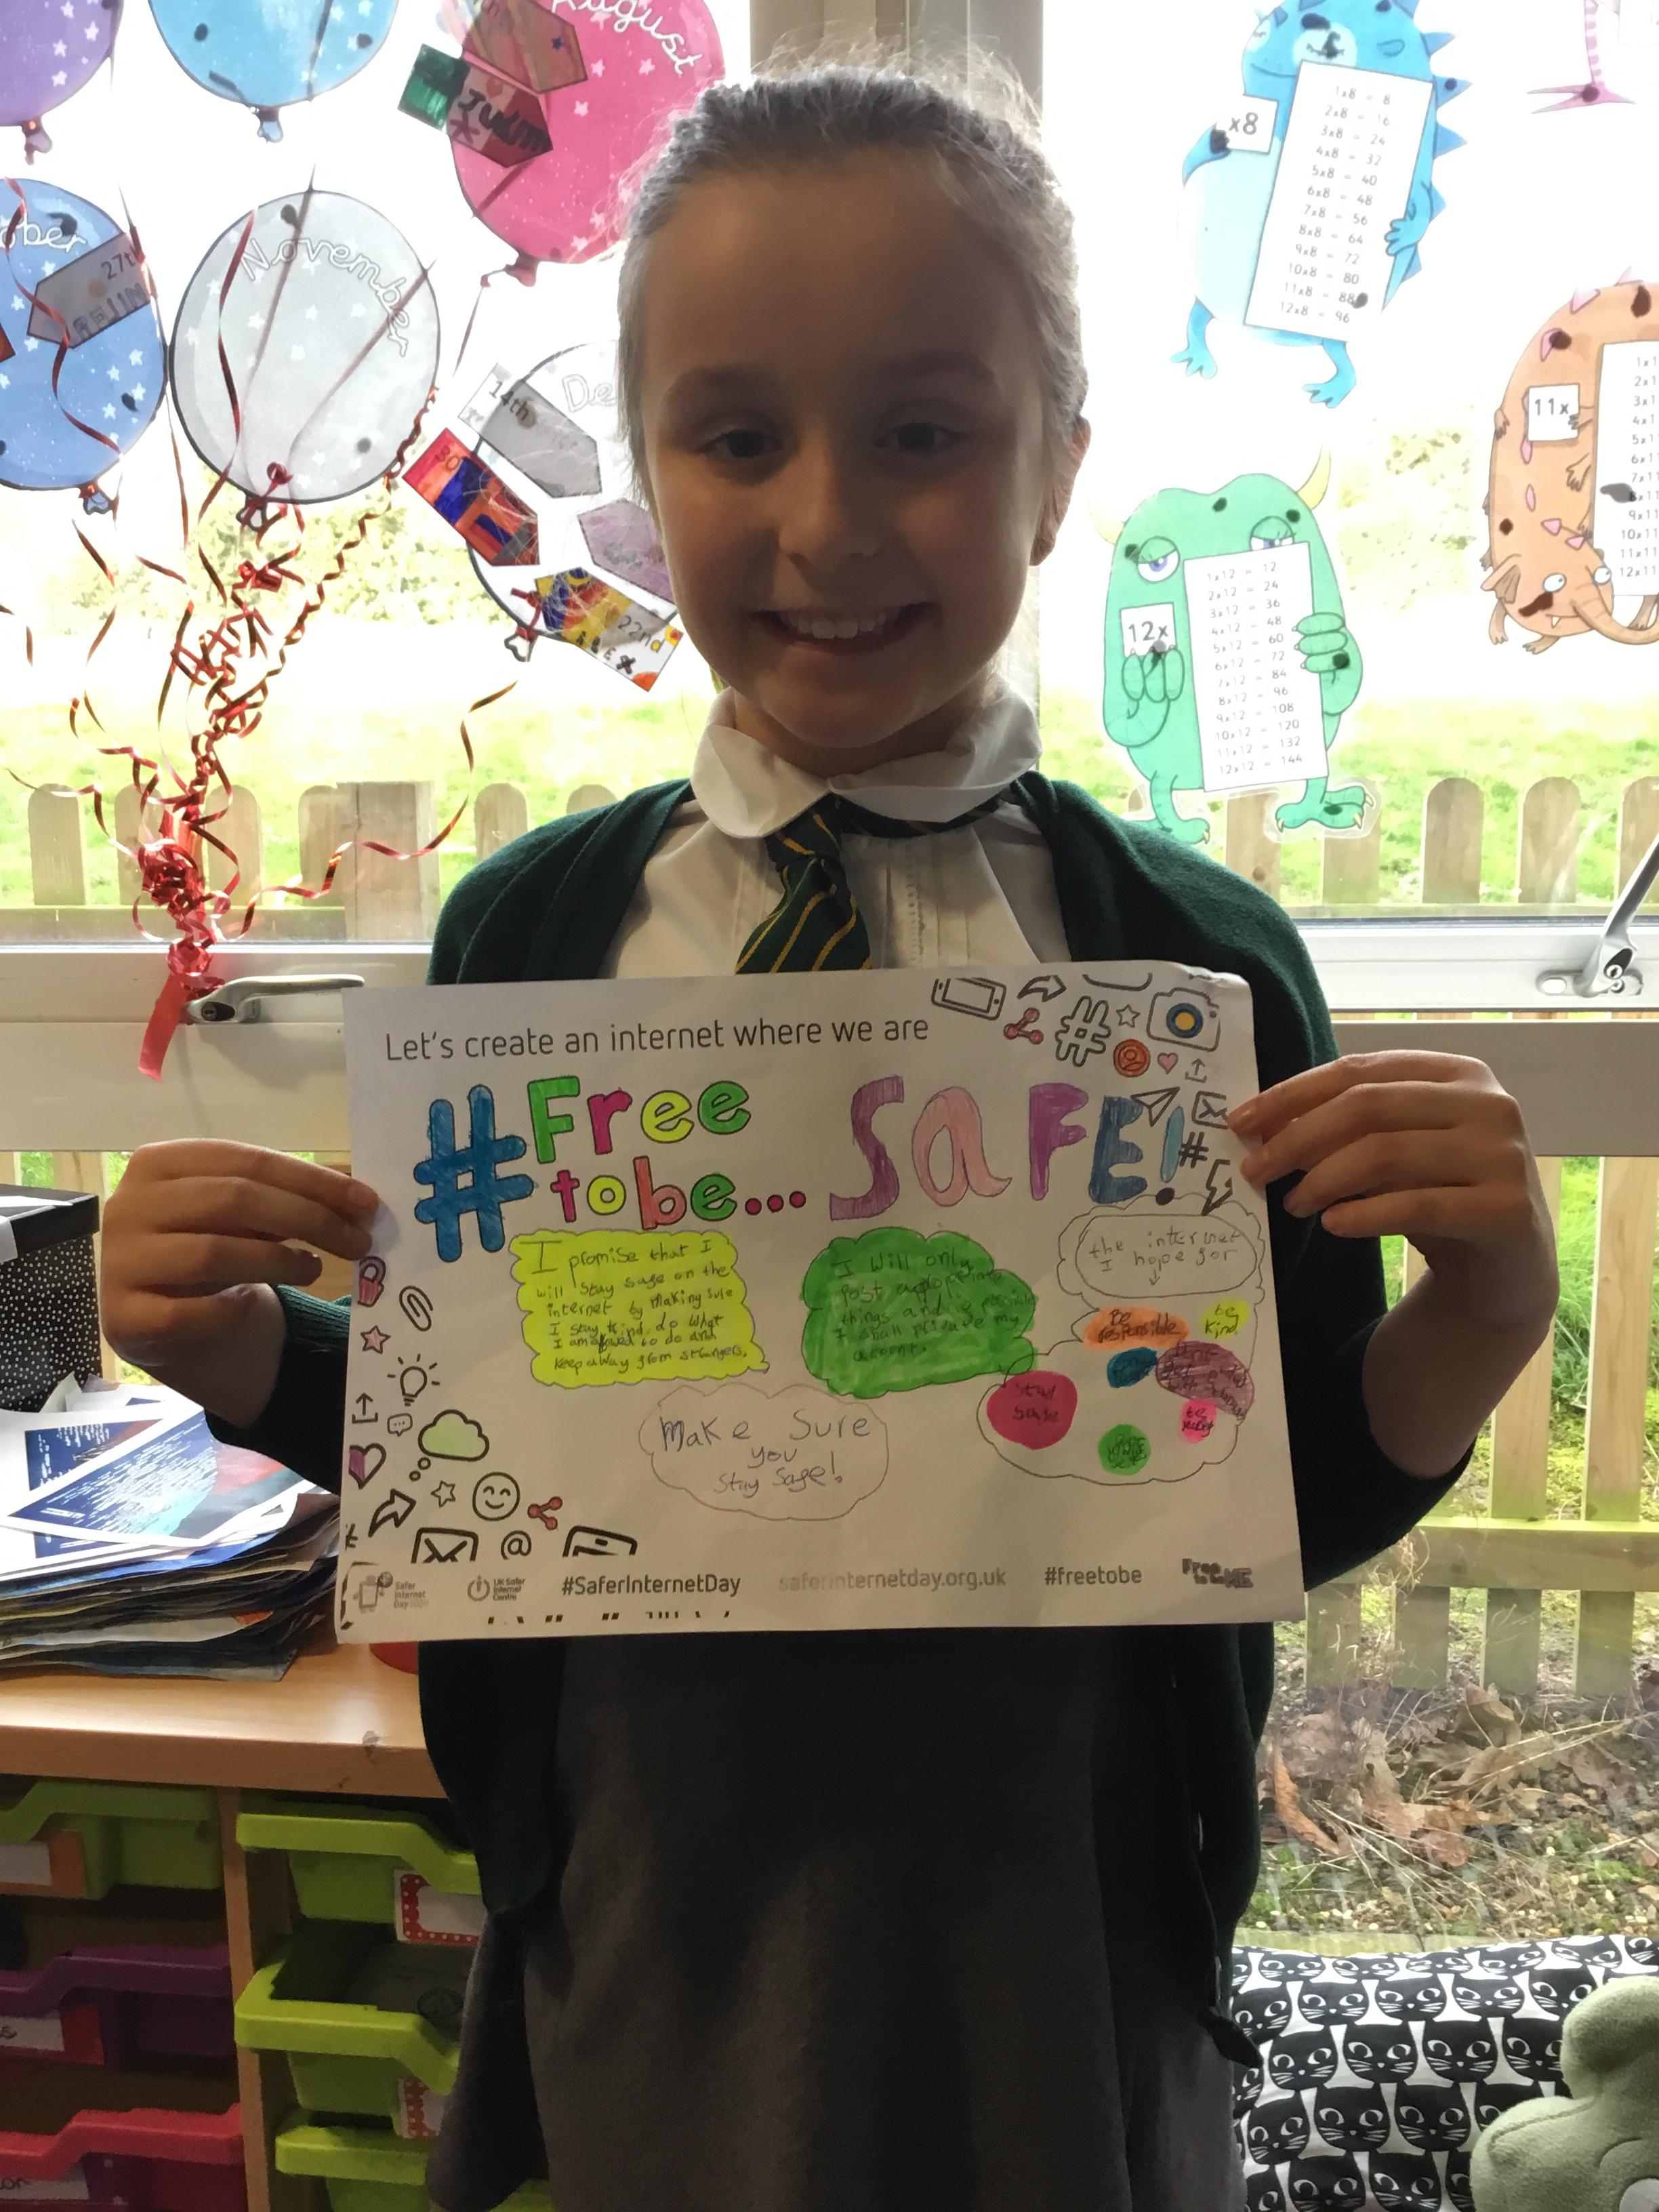 August
Judith
27th
November
14th
De
22nd
ALEX
x8
1x8 = 8
2x8 = 16
3x8 = 24
4x8 = 32
5x8 = 40
6x8 = 48
7x8 = 56
8x8 = 64
9x8 = 72
10x8 = 80
11x8 = 88
12x8 = 96
11x
1x1
2x1
3x1
4x1
5x1
6x1
7x11
8x11
9x11
10x11
11x11
12x11
12x
1x12 = 12
2x12 = 24
3x12 = 36
4x12 = 48
5x12 = 60
6x12 = 72
7x12 = 84
8x12 = 96
9x12 = 108
10x12 = 120
11x12 = 132
12x12 = 144
Let's create an internet where we are
#Free
to be... SaFE!
I promise that I
will stay safe on the
internet by making sure
I stay kind, do what
I am allowed to do and
keep away from strangers.
I will only
post appropriate
things and if possible
I shall private my
acount.
the internet
I hope for
Be
responsible
be
kind
Stay
safe
Make Sure
you
Stay Safe!
Safer
Internet
Day 2020
UK Safer
Internet
Centre
#SaferInternetDay
saferinternetday.org.uk
#freetobe
Free
to be ME